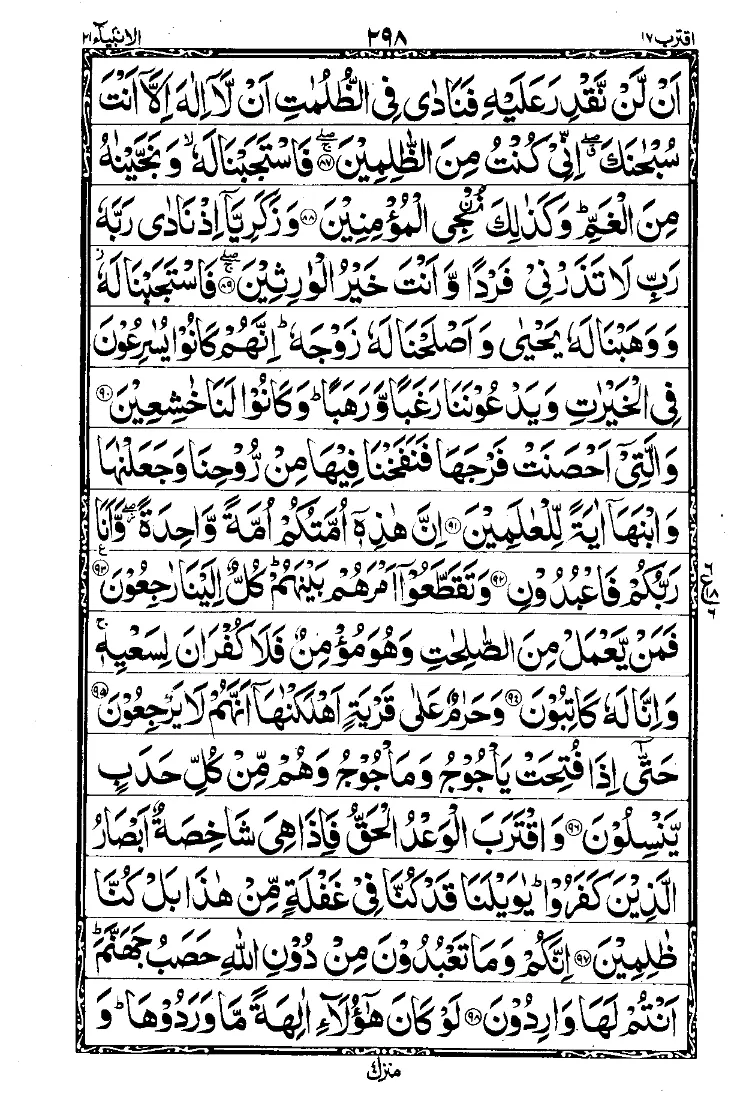 اقترب ١٧
٢٩٨
الانبیآء ٢١
اَنْ لَّنْ نَّقْدِرَ عَلَیْهِ فَنَادٰی فِی الظُّلُمٰتِ اَنْ لَّاۤ اِلٰهَ اِلَّاۤ اَنْتَ
سُبْحٰنَكَ ۖۗ اِنِّیْ كُنْتُ مِنَ الظّٰلِمِیْنَ ۚۖ ﴿٨٧﴾ فَاسْتَجَبْنَا لَهٗ ۙ وَ نَجَّیْنٰهُ
مِنَ الْغَمِّ ؕ وَ كَذٰلِكَ نُـنْجِی الْمُؤْمِنِیْنَ ﴿٨٨﴾ وَ زَكَرِیَّاۤ اِذْ نَادٰی رَبَّهٗ
رَبِّ لَا تَذَرْنِیْ فَرْدًا وَّ اَنْتَ خَیْرُ الْوٰرِثِیْنَ ۚۖ ﴿٨٩﴾ فَاسْتَجَبْنَا لَهٗ ؗ
وَ وَهَبْنَا لَهٗ یَحْیٰی وَ اَصْلَحْنَا لَهٗ زَوْجَهٗ ؕ اِنَّهُمْ كَانُوْا یُسٰرِعُوْنَ
فِی الْخَیْرٰتِ وَ یَدْعُوْنَنَا رَغَبًا وَّ رَهَبًا ؕ وَ كَانُوْا لَنَا خٰشِعِیْنَ ﴿٩٠﴾
وَ الَّتِیْۤ اَحْصَنَتْ فَرْجَهَا فَنَفَخْنَا فِیْهَا مِنْ رُّوْحِنَا وَ جَعَلْنٰهَا
وَ ابْنَهَاۤ اٰیَةً لِّلْعٰلَمِیْنَ ﴿٩١﴾ اِنَّ هٰذِهٖۤ اُمَّتُكُمْ اُمَّةً وَّاحِدَةً ۖؗ وَّ اَنَا
رَبُّكُمْ فَاعْبُدُوْنِ ﴿٩٢﴾ وَ تَقَطَّعُوْۤا اَمْرَهُمْ بَیْنَهُمْ ؕ كُلٌّ اِلَیْنَا رٰجِعُوْنَ ﴿٩٣﴾ ع
فَمَنْ یَّعْمَلْ مِنَ الصّٰلِحٰتِ وَ هُوَ مُؤْمِنٌ فَلَا كُفْرَانَ لِسَعْیِهٖ ۚ
وَ اِنَّا لَهٗ كَاتِبُوْنَ ﴿٩٤﴾ وَ حَرٰمٌ عَلٰی قَرْیَةٍ اَهْلَكْنٰهَاۤ اَنَّهُمْ لَا یَرْجِعُوْنَ ﴿٩٥﴾
حَتّٰۤی اِذَا فُتِحَتْ یَاْجُوْجُ وَ مَاْجُوْجُ وَ هُمْ مِّنْ كُلِّ حَدَبٍ
یَّنْسِلُوْنَ ﴿٩٦﴾ وَ اقْتَرَبَ الْوَعْدُ الْحَقُّ فَاِذَا هِیَ شَاخِصَةٌ اَبْصَارُ
الَّذِیْنَ كَفَرُوْا ؕ یٰوَیْلَنَا قَدْ كُنَّا فِیْ غَفْلَةٍ مِّنْ هٰذَا بَلْ كُنَّا
ظٰلِمِیْنَ ﴿٩٧﴾ اِنَّكُمْ وَ مَا تَعْبُدُوْنَ مِنْ دُوْنِ اللّٰهِ حَصَبُ جَهَنَّمَ ؕ
اَنْتُمْ لَهَا وٰرِدُوْنَ ﴿٩٨﴾ لَوْ كَانَ هٰۤؤُلَآءِ اٰلِهَةً مَّا وَرَدُوْهَا ؕ وَ